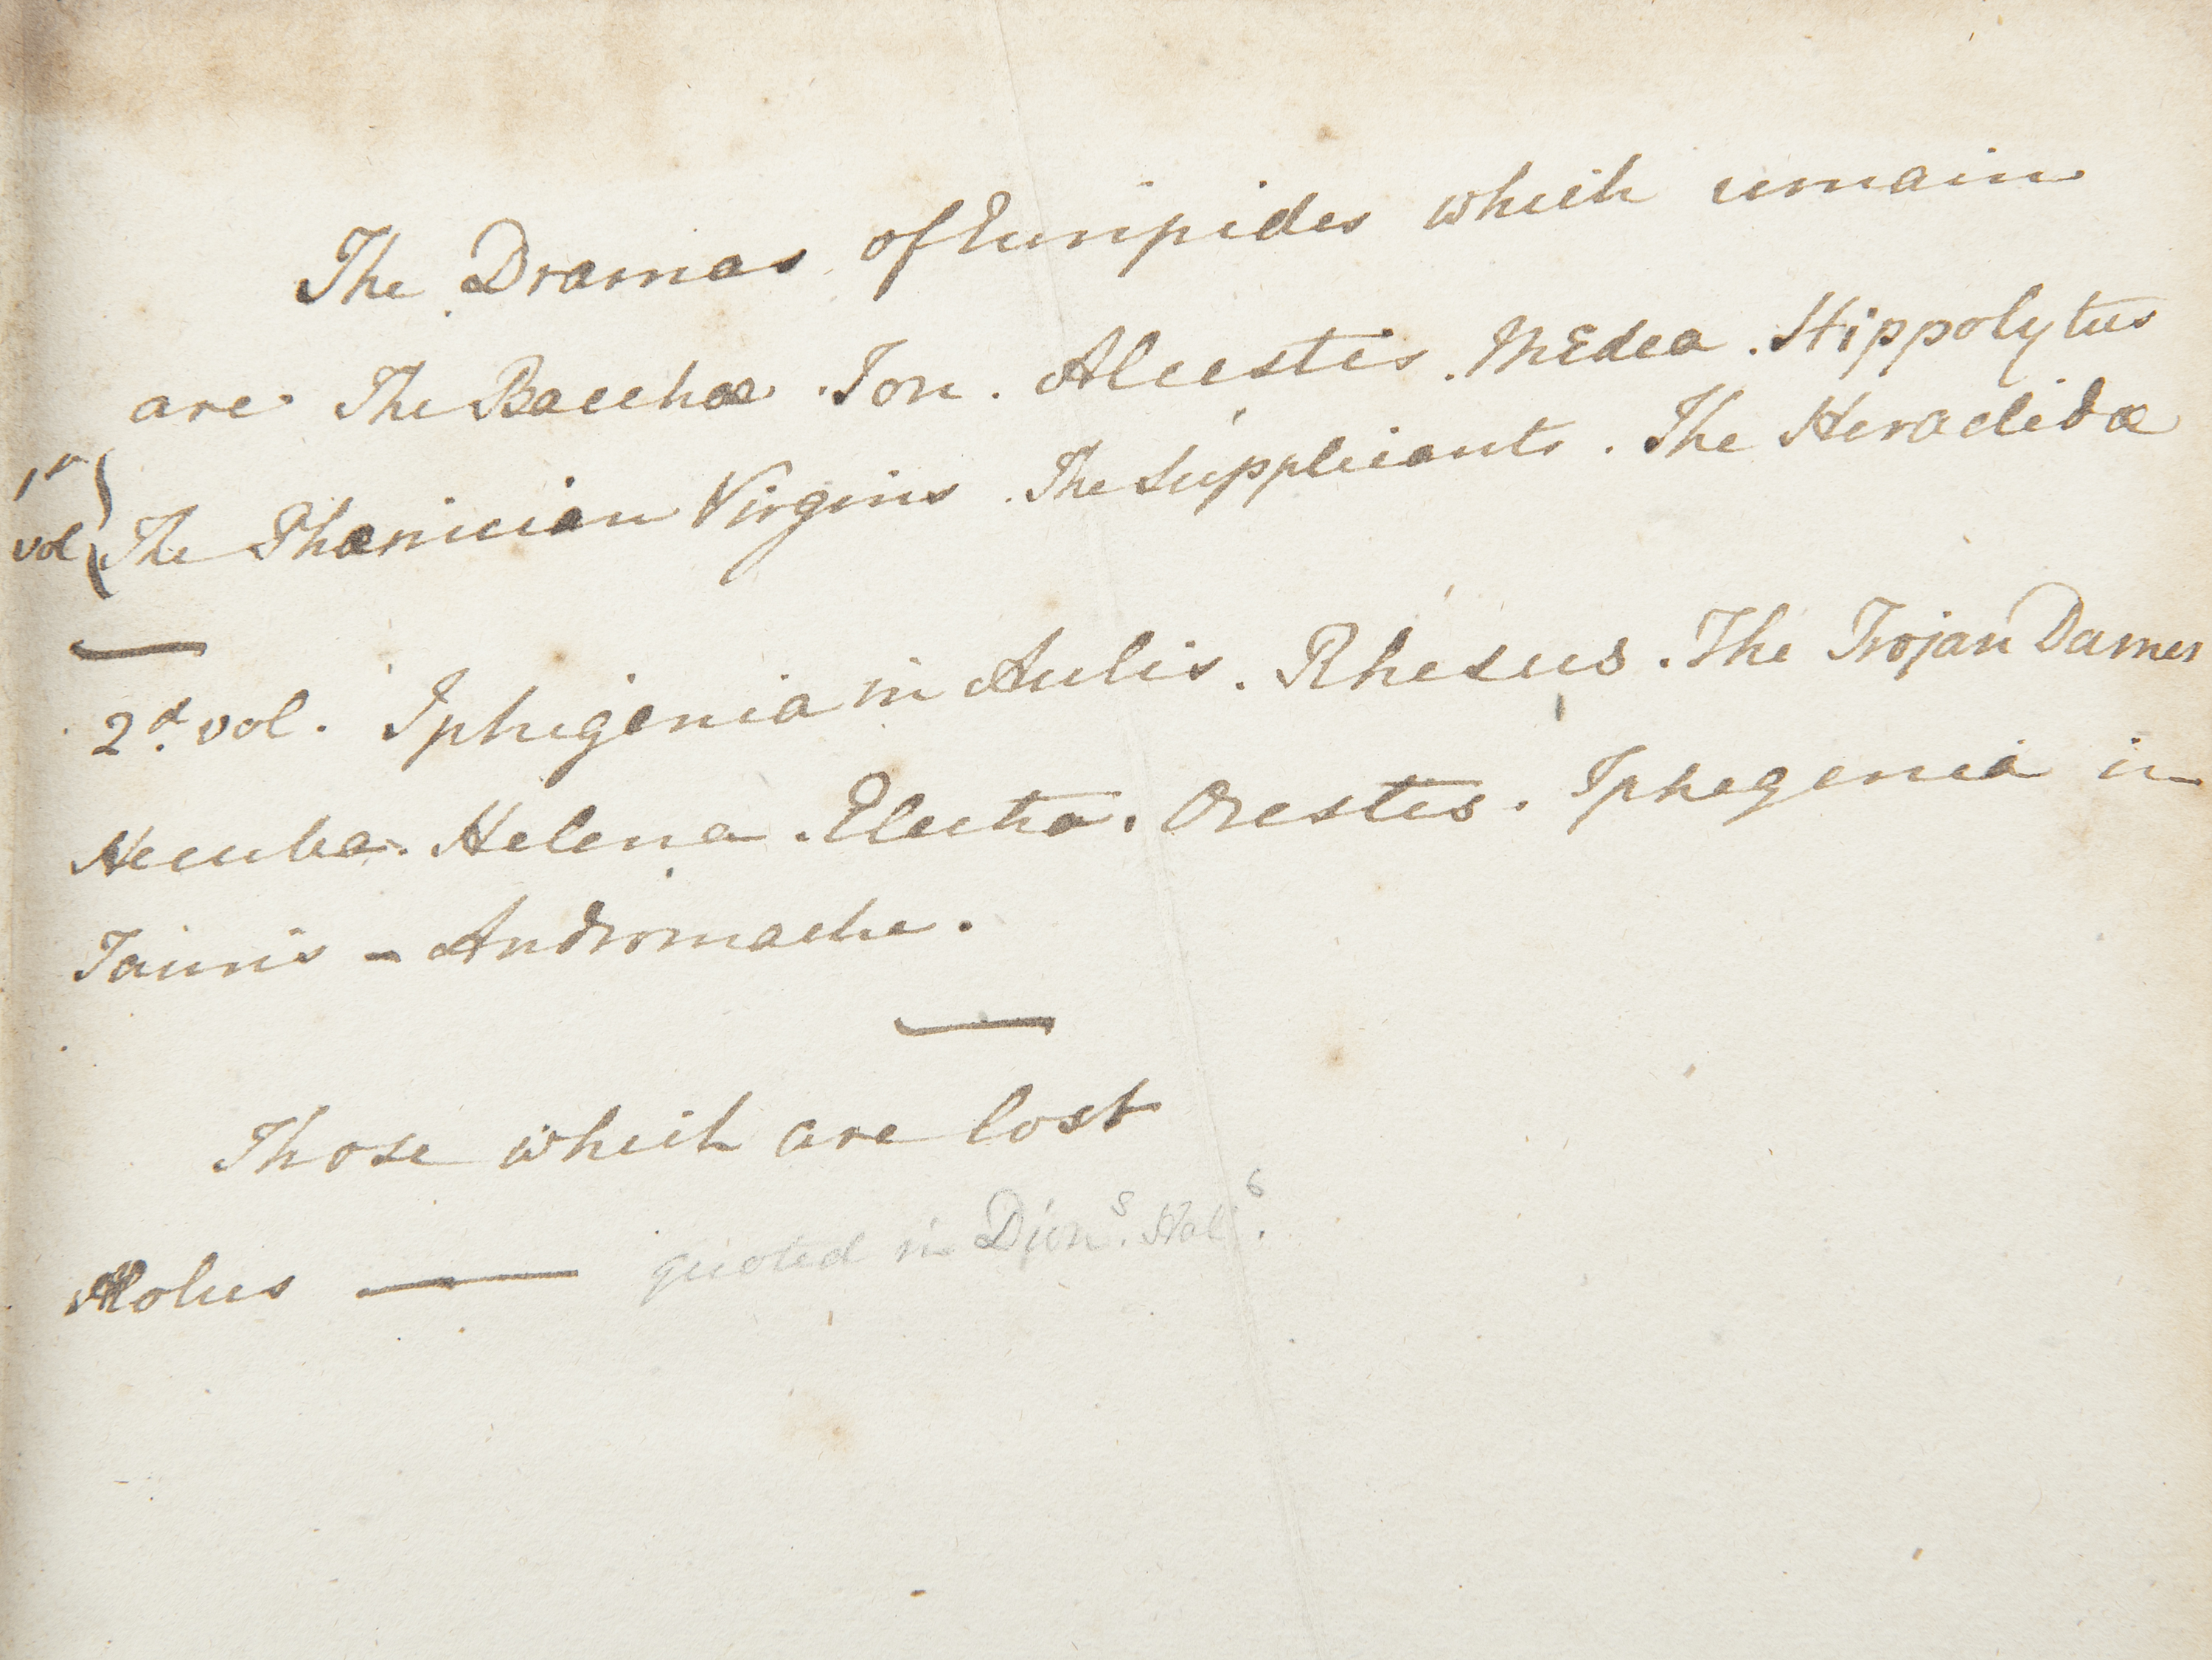 The Dramas of Euripides which remain
are The Bacchæ . Ion . Alcestis . Medea . Hippolytus
1st vol } The Phœnician Virgins . The Suppliants . The Heraclidæ
2d. vol . Iphigenia in Aulis . Rhesus . The Trojan Dames
Hecuba . Helena . Electra . Orestes . Iphegenia in
Tauris - Andromache .
Those which are lost
Æolus — quoted in Dions. Hals.